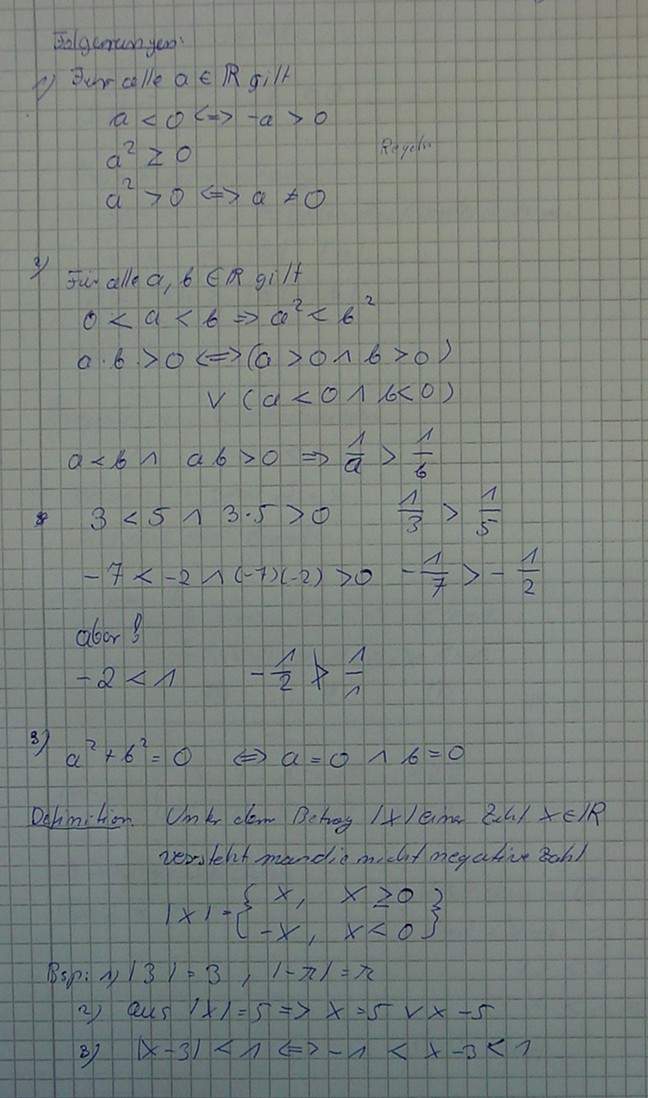 Folgerungen:
1) Für alle a ∈ ℝ gilt
a < 0 <=> -a > 0
a² ≥ 0
Regeln
a² > 0 <=> a ≠ 0
2) Für alle a, b ∈ ℝ gilt
0 < a < b => a² < b²
a · b · > 0 <=> (a > 0 ∧ b > 0)
∨ (a < 0 ∧ b < 0)
a < b ∧ ab > 0 => 1/a > 1/b
3 < 5 ∧ 3·5 > 0 1/3 > 1/5
-7 < -2 ∧ (-7)(-2) > 0 -1/7 > -1/2
aber!
-2 < 1 -1/2 ≯ 1/1
3) a² + b² = 0 <=> a = 0 ∧ b = 0
Definition Unter dem Betrag |x| einer Zahl x ∈ ℝ
versteht man die nicht negative Zahl
|x| = { x, x ≥ 0
-x, x < 0 }
Bsp: 1) |3| = 3, |-π| = π
2) aus |x| = 5 => x = 5 ∨ x -5
3) |x-3| < 1 <=> -1 < x-3 < 1